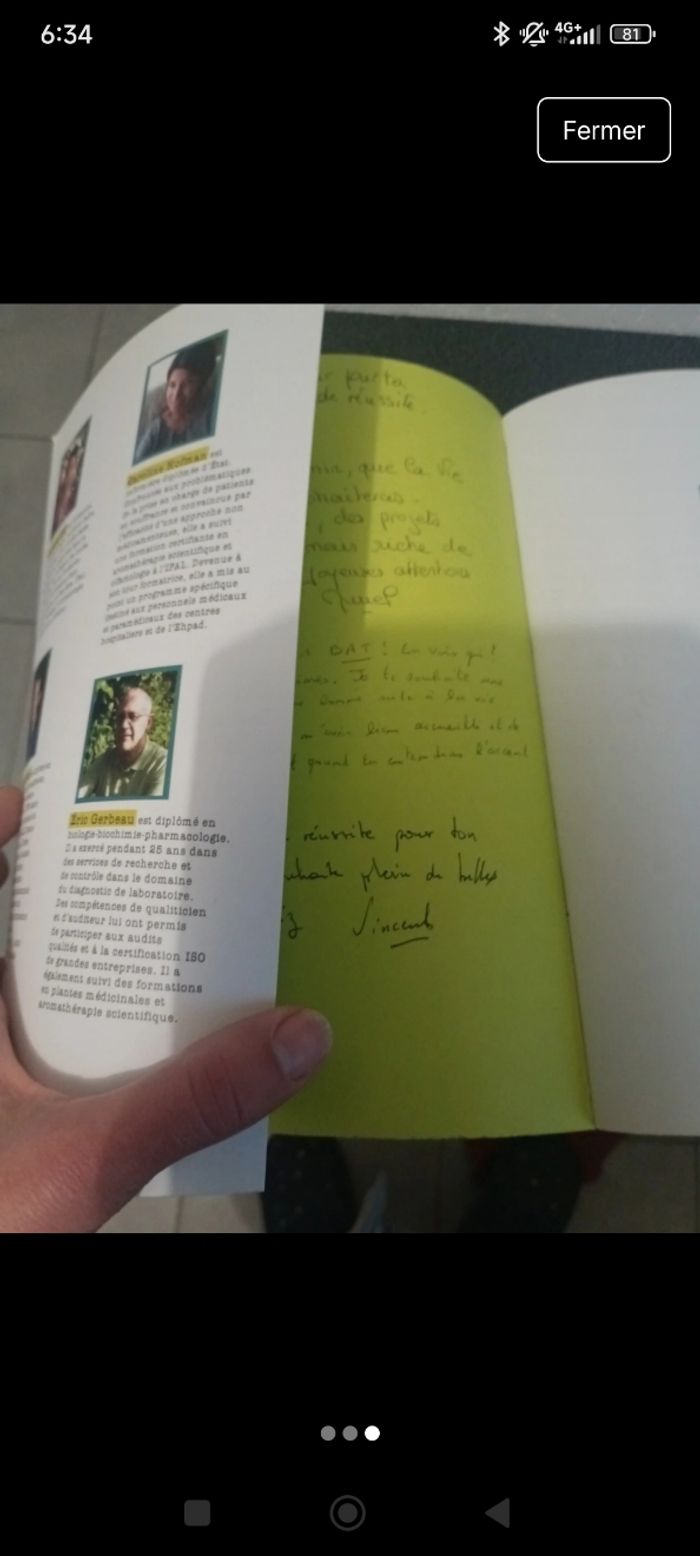 6:34
4G+
81
Fermer
Caroline Hofman est
infirmière diplômée d'État.
Confrontée aux problématiques
de la prise en charge de patients
en souffrance et convaincue par
l'efficacité d'une approche non
médicamenteuse, elle a suivi
une formation certifiante en
aromathérapie scientifique et
olfactologie à l'IFA1. Devenue à
son tour formatrice, elle a mis au
point un programme spécifique
destiné aux personnels médicaux
et paramédicaux des centres
hospitaliers et de l'Ehpad.
Éric Gerbeau est diplômé en
biologie-biochimie-pharmacologie.
Il a exercé pendant 25 ans dans
des services de recherche et
de contrôle dans le domaine
du diagnostic de laboratoire.
Des compétences de qualiticien
et d'auditeur lui ont permis
de participer aux audits
qualités et à la certification ISO
de grandes entreprises. Il a
également suivi des formations
en plantes médicinales et
aromathérapie scientifique.
de réussite.
, que la vie
, des projets
mais riche de
Joyeuses attentions
BAT ! En voie
. Je te souhaite une
bonne suite à la vie
bien accueillie et de
quand tu entendras l'accent
réussite pour ton
plein de belles
Vincent